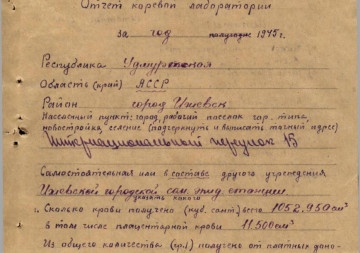 Отчет коревой лаборатории
за год полугодие 1945 г.
Республика Удмуртская
Область (край) АССР
Район город Ижевск
Населенный пункт: город, рабочий поселок гор. типа,
новостройка, селение (подчеркнуть и вписать точный адрес)
Интернациональный переулок 15
Самостоятельная или в составе другого учреждения
Ижевской городской сан. эпид. станции
указать какого
1. Сколько крови получено (куб. сант.) всего 1052.950 см³
в том числе плацентарной крови 11.500 см³
Из общего количества (гр. 1) получено от платных доно-